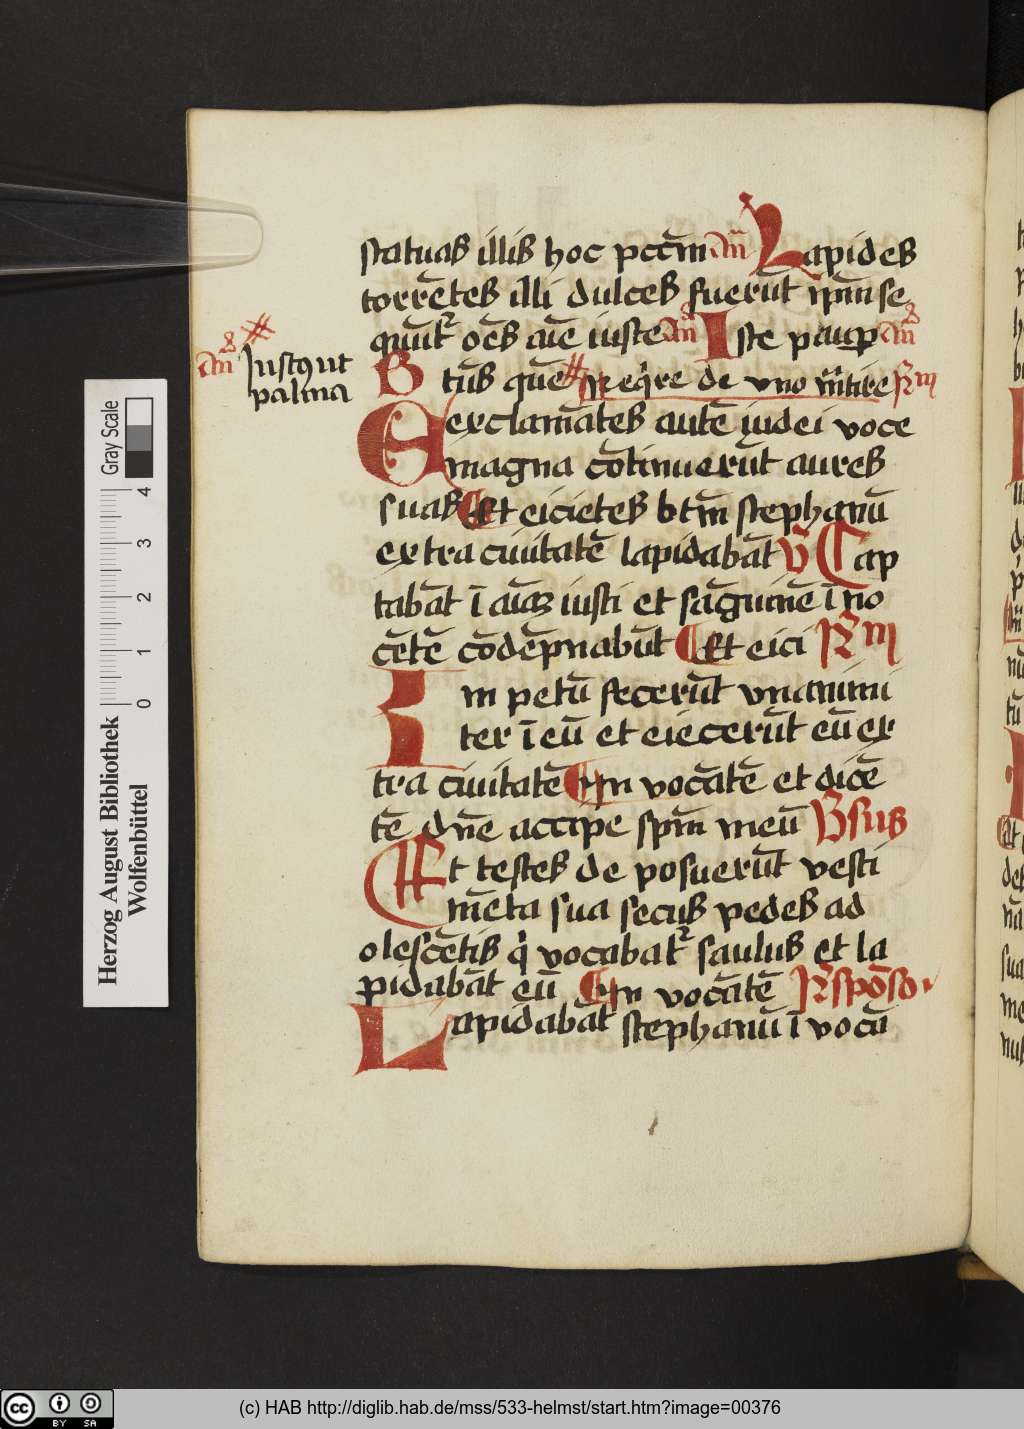 statuas illis hoc pccm an Lapides
torrētes illi dulces fuerūt ipm se
quūt oēs aīe iuste an Iste paup an
an Iustq ut
palma
Btūs quē ℟ eqre de vno mtire ℟ m
Eexclamātes autē iudei voce
magna cōtinuerūt aures
suas Et eicietes btm stephanū
extra ciuitatē lapidabāt v̄ Cap
tabāt ī aīaz iusti et sāguinē īno
cētē cōdēpnabūt Et eici ℟ m
Im petū fecerūt vnanimi
ter ī eū et eiecerūt eū ex
tra ciuitatē In vocātē et dicē
tē dnē accipe spm meū Vsus
Et testes de posuerūt vesti
mēta sua secus pedes ad
olescētis q vocabat saulus et la
pidabāt eū In vocātē ℟spōso
Lapidabāt stephanū ī vocā
Herzog August Bibliothek
Wolfenbüttel
0 1 2 3 4
Gray Scale
cc BY SA
(c) HAB http://diglib.hab.de/mss/533-helmst/start.htm?image=00376